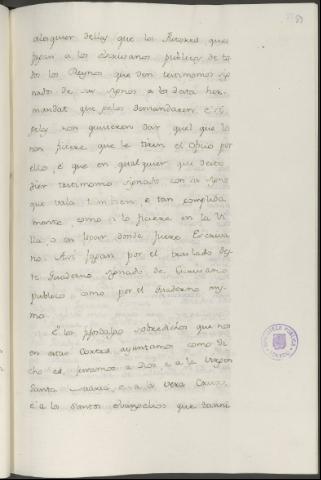 qualquier dellos que lo ficiere que
fagan a los escrivanos publicos de to
dos los Reynos que den testimonio sig
nado de su signo a la dicha her
mandat que gelos demandaren e si
gelo non quisieren dar que el que lo
non ficiere que le tiren el oficio por
ello, e que en qualquier que
dier testimonio signado con su signo
que vala tambien e tan complida
mente como si lo ficiere en la Vi
lla, o en logar donde fuere Escriva
no. Asi fagan por el traslado des
te Quaderno signado de Escrivano
publico como por el Quaderno mis
mo.
E los fijosdalgo sobredichos que nos
en estas Cortes ayuntamos como di
cho es, juramos a Dios e a la Virgen
Santa Maria e a la vera Cruz,
e a los Santos Evangelios que